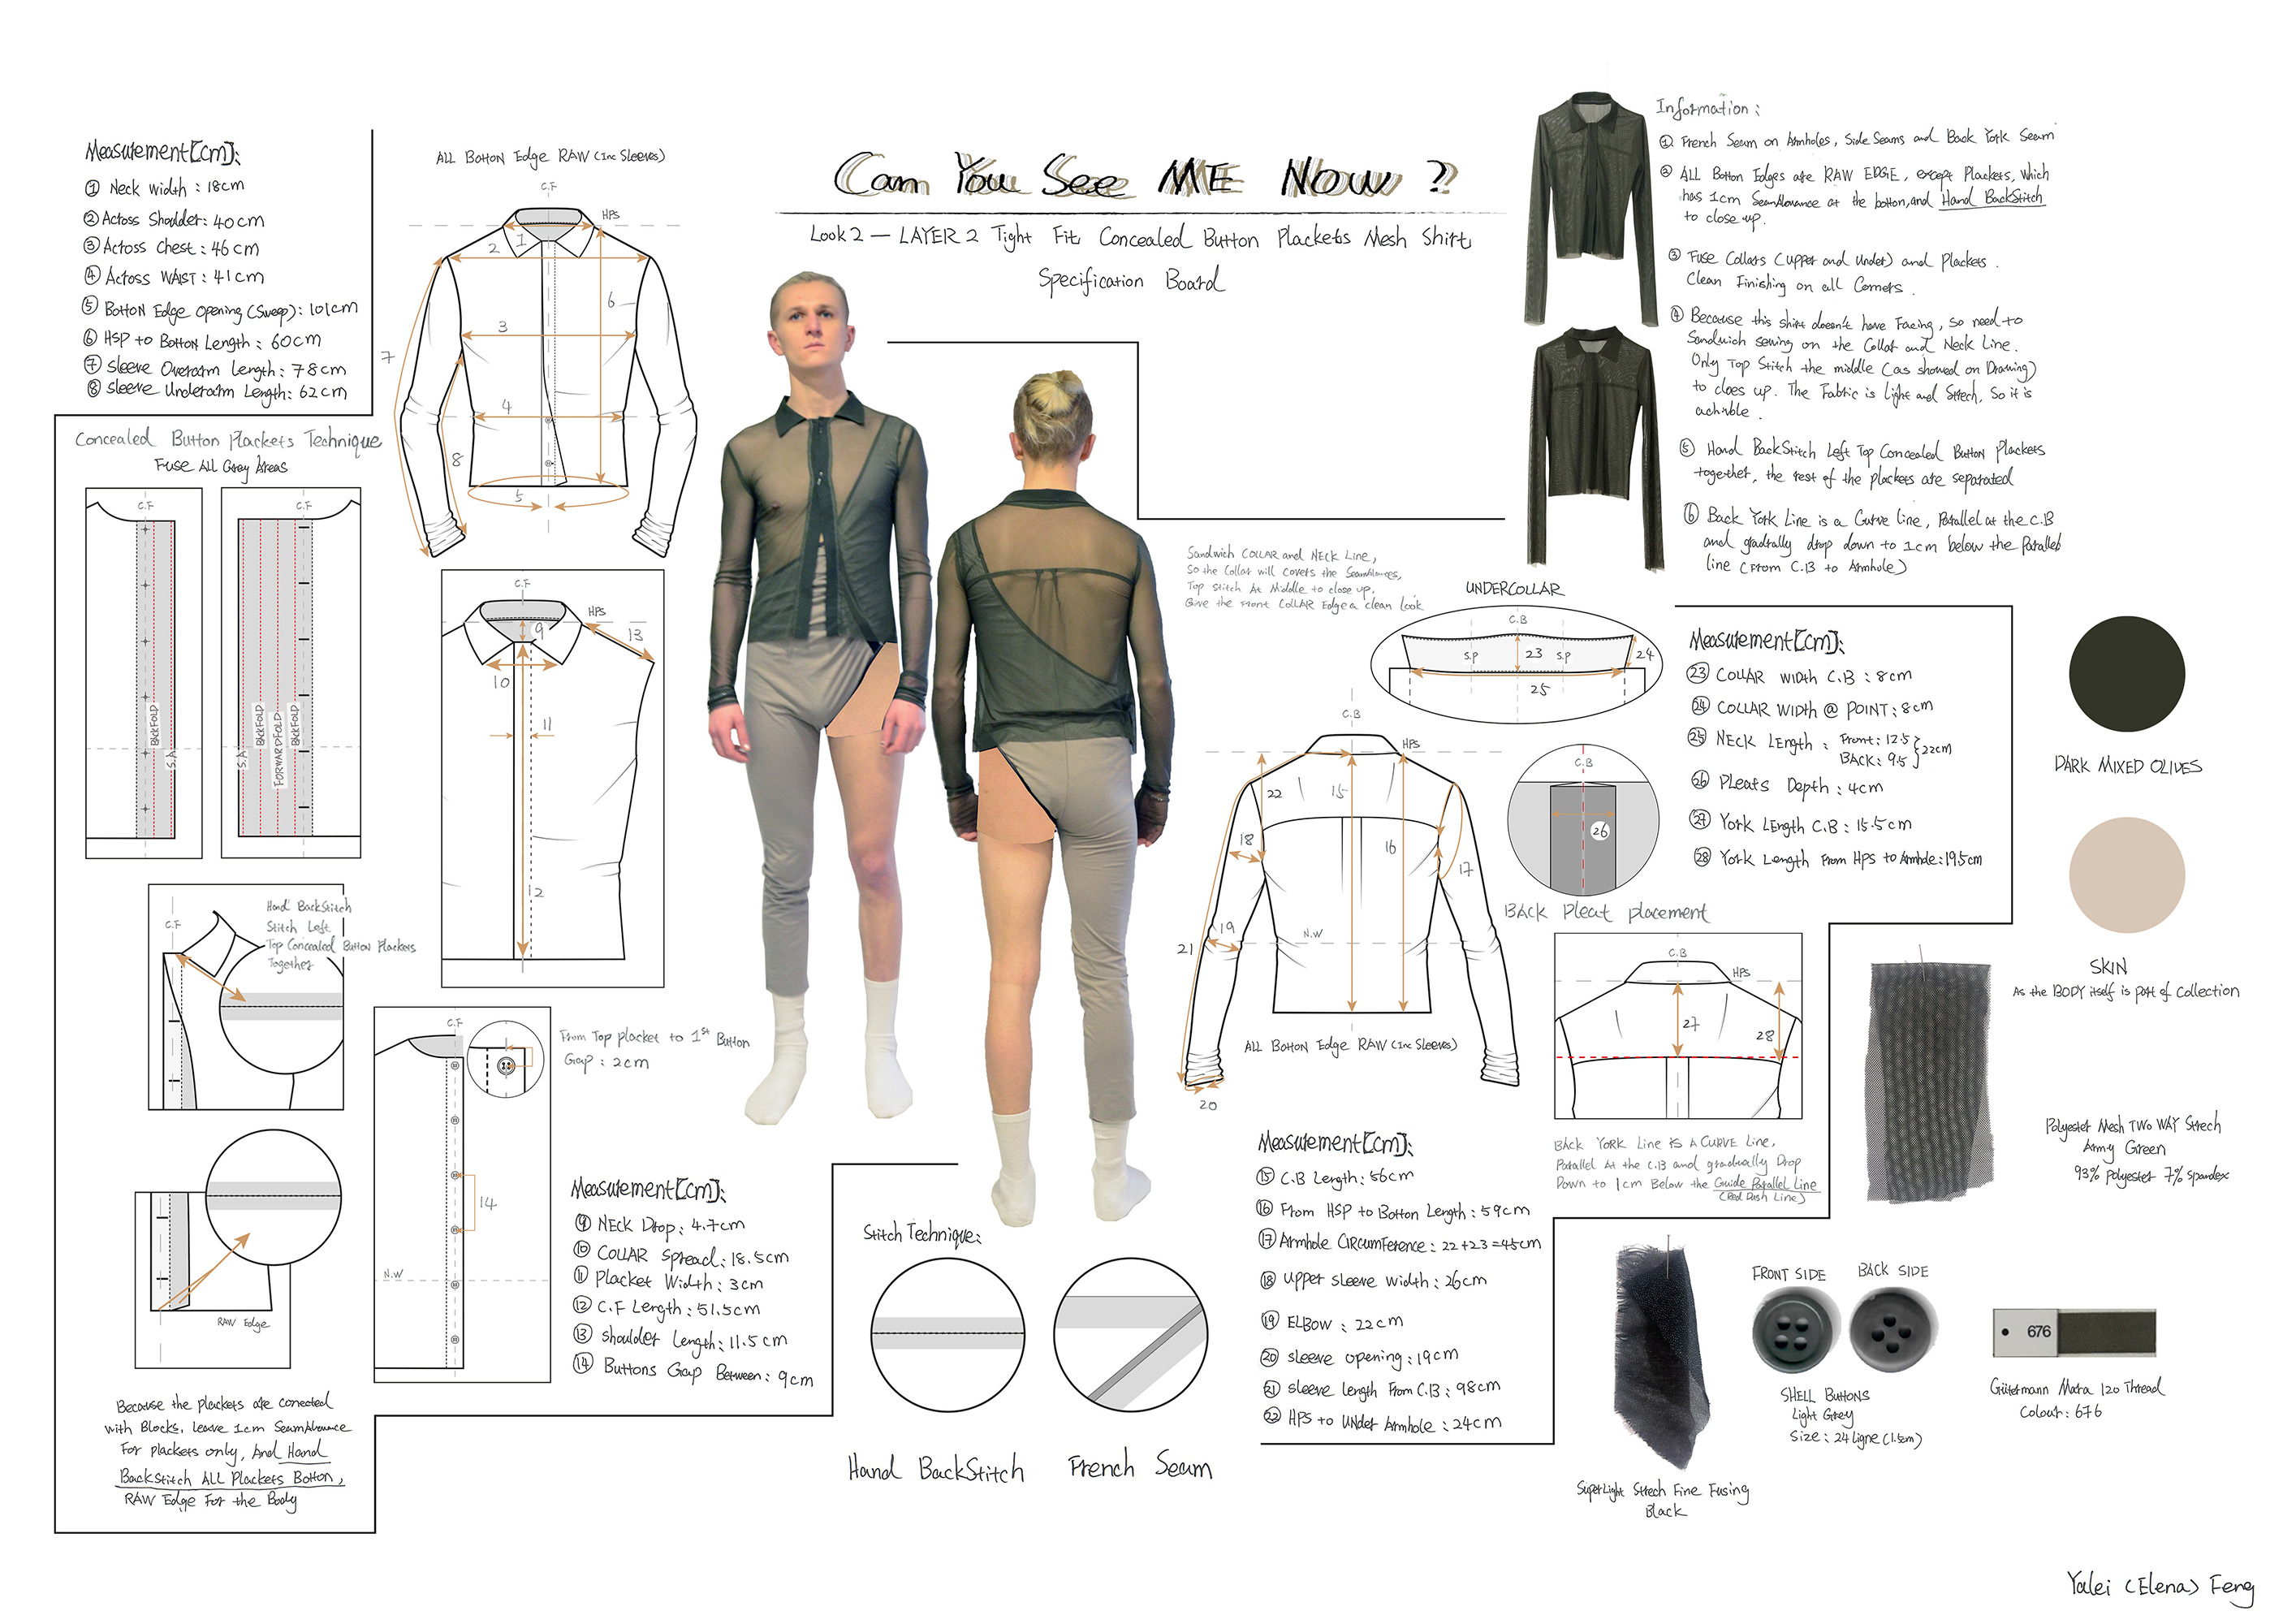 Can You See ME Now ?
Look 2 — LAYER 2 Tight Fit Concealed Button Plackets Mesh Shirt
Specification Board
Measurement[cm]:
① Neck width : 18cm
② Across Shoulder: 40cm
③ Across Chest : 46cm
④ Across WAIST : 41cm
⑤ Botton Edge Opening (Sweep): 101cm
⑥ HSP to Botton Length : 60cm
⑦ Sleeve Overarm Length: 78cm
⑧ Sleeve Underarm Length: 62cm
ALL Botton Edge RAW (Inc Sleeves)
C.F
HPS
1
2
3
4
5
6
7
8
Concealed Button Plackets Technique
Fuse ALL Grey Areas
C.F
BACKFOLD
S.A
C.F
S.A
BACKFOLD
FORWARDFOLD
BACKFOLD
C.F
HPS
9
10
11
12
13
C.F
Hand BackStitch
Stitch Left
Top Concealed Button Plackets
Together
RAW Edge
Because the plackets are conected
with Blocks, leave 1cm SeamAllowance
For plackets only, And Hand
BackStitch ALL Plackets Botton,
RAW Edge For the Body
C.F
N.W
14
From Top placket to 1st Button
Gap : 2cm
Measurement[cm]:
⑨ NECK Drop: 4.7cm
⑩ COLLAR Spread: 18.5cm
⑪ Placket Width : 3cm
⑫ C.F Length: 51.5cm
⑬ Shoulder Length: 11.5cm
⑭ Buttons Gap Between: 9cm
Stitch Technique:
Hand BackStitch
French Seam
Sandwich COLLAR and NECK Line,
So the Collar will covers the SeamAllowances,
Top Stitch At Middle to close up,
Give the Front COLLAR Edge a clean Look
UNDERCOLLAR
C.B
S.P
23
S.P
24
25
C.B
HPS
22
15
16
17
18
19
N.W
21
20
ALL Botton Edge RAW (Inc Sleeves)
C.B
26
BACK Pleat placement
C.B
HPS
27
28
BACK YORK Line IS A CURVE Line,
Parallel At the C.B and gradually Drop
Down to 1cm Below the Guide Parallel Line
(Red Dash Line)
Measurement[cm]:
⑮ C.B Length: 56cm
⑯ From HSP to Botton Length : 59cm
⑰ Armhole Circumference : 22+23=45cm
⑱ Upper sleeve width : 26cm
⑲ ELBOW : 22cm
⑳ sleeve opening : 19cm
㉑ sleeve length From C.B : 98cm
㉒ HPS to Under Armhole : 24cm
Information :
① French Seam on Armholes, Side Seams and Back York Seam
② ALL Botton Edges are RAW EDGE, except Plackets, which
has 1cm SeamAllowance at the botton, and Hand BackStitch
to close up.
③ Fuse Collars (upper and under) and plackets .
Clean Finishing on all Corners .
④ Because this shirt doesn't have Facing, so need to
Sandwich sewing on the Collar and Neck Line.
Only Top Stitch the middle (as showed on Drawing)
to cloes up. The Fabric is light and Strech, So it is
achivble .
⑤ Hand BackStitch Left Top Concealed Button Plackets
together, the rest of the plackets are separated
⑥ Back York Line is a Curve line, Parallel at the C.B
and gradually drop down to 1cm below the Parallel
line (From C.B to Armhole)
Measurement[cm]:
㉓ COLLAR width C.B : 8cm
㉔ COLLAR WIDTH @ POINT : 8cm
㉕ NECK Length : Front: 12.5 } 22cm
BACK: 9.5
㉖ Pleats Depth : 4cm
㉗ York Length C.B : 15.5cm
㉘ York Length From HPS to Armhole: 19.5cm
DARK MIXED OLIVES
SKIN
As the BODY itself is part of Collection
Polyester Mesh TWO WAY Strech
Army Green
93% Polyester 7% Spandex
SuperLight Strech Fine Fusing
Black
FRONT SIDE
BACK SIDE
SHELL Buttons
Light Grey
Size : 24 ligne (1.5cm)
676
Gütermann Mara 120 Thread
Colour: 676
Yalei (Elena) Feng